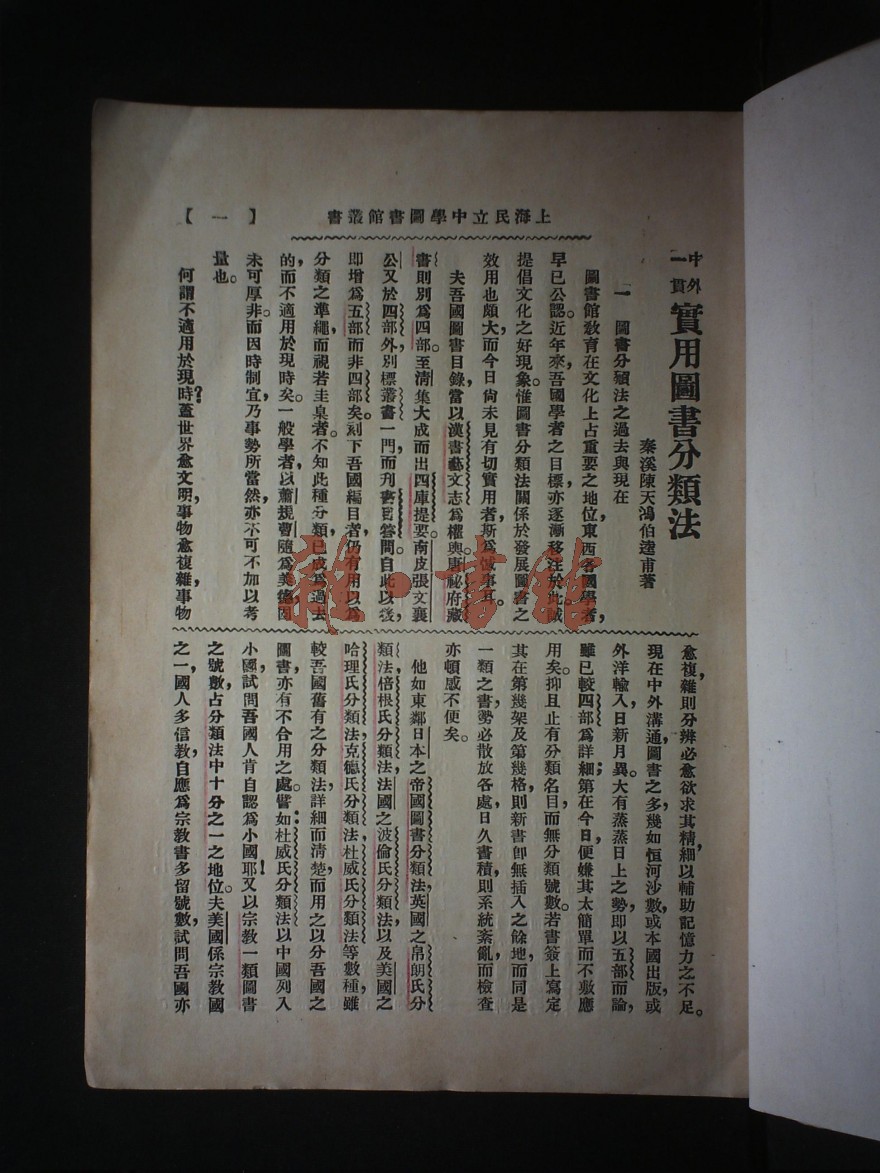 上海民立中學圖書館叢書
【一】
中外一貫 實用圖書分類法
秦溪陳天鴻伯逵甫著
一 圖書分類法之過去與現在
圖書館敎育在文化上占重要之地位，東西各國學者，
早已公認。近年來，吾國學者之目標，亦逐漸移注於此，誠
提倡文化之好現象。惟圖書分類法關係於發展圖書之
效用也頗大，而今日尙未見有切實用者，斯爲憾事耳。
夫吾國圖書目錄，當以漢書藝文志爲權輿。唐祕府藏
書，則別爲四部。至淸集大成而出四庫提要。南皮張文襄
公又於四部外，別標叢書一門，而刋書目答問。自此以後，
卽增爲五部而非四部矣。刻下吾國編目者，仍有用以爲
分類之準繩，而視若圭臬者。不知此種分類，已成爲過去
的而不適用於現時矣。一般學者，以蕭規曹隨爲美德，固
未可厚非。而因時制宜，乃事勢所當然，亦不可不加以考
量也。
何謂不適用於現時？蓋世界愈文明，事物愈複雜，事物
愈複雜則分辨必愈欲求其精細以輔助記憶力之不足。
現在中外溝通，圖書之多，幾如恒河沙數，或本國出版，或
外洋輸入，日新月異。大有蒸蒸日上之勢，卽以五部而論，
雖已較四部爲詳細；第在今日，便嫌其太簡單而不敷應
用矣。抑且止有分類名目，而無分類號數。若書簽上寫定
其在第幾架及第幾格，則新書卽無插入之餘地，而同是
一類之書，勢必散放各處，日久書積，則系統紊亂，而檢查
亦頓感不便矣。
他如東鄰日本之帝國圖書分類法，英國之帛朗氏分
類法，倍根氏分類法，法國之波倫氏分類法，以及美國之
哈理氏分類法，克德氏分類法，杜威氏分類法等數種，雖
較吾國舊有之分類法，詳細而淸楚，而用之以分吾國之
圖書，亦有不合用之處。譬如：杜威氏分類法以中國列入
小國，試問吾國人肯自認爲小國耶！又以宗敎一類圖書
之號數，占分類法中十分之一之地位。夫美國係宗敎國
之一，國人多信敎，自應爲宗敎書多留號數，試問吾國亦
雜·書館